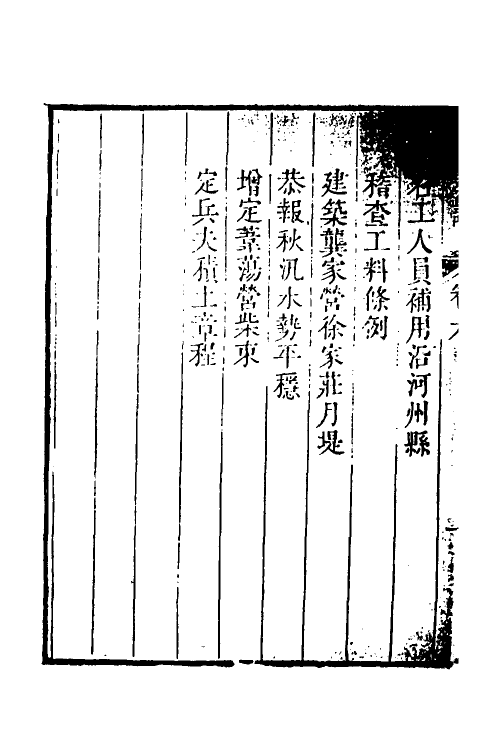 工人員補用沿河州縣
稽查工料條例
建築龔家營徐家莊月堤
恭報秋汛水勢平穩
增定葦蕩營柴束
定兵夫積土章程